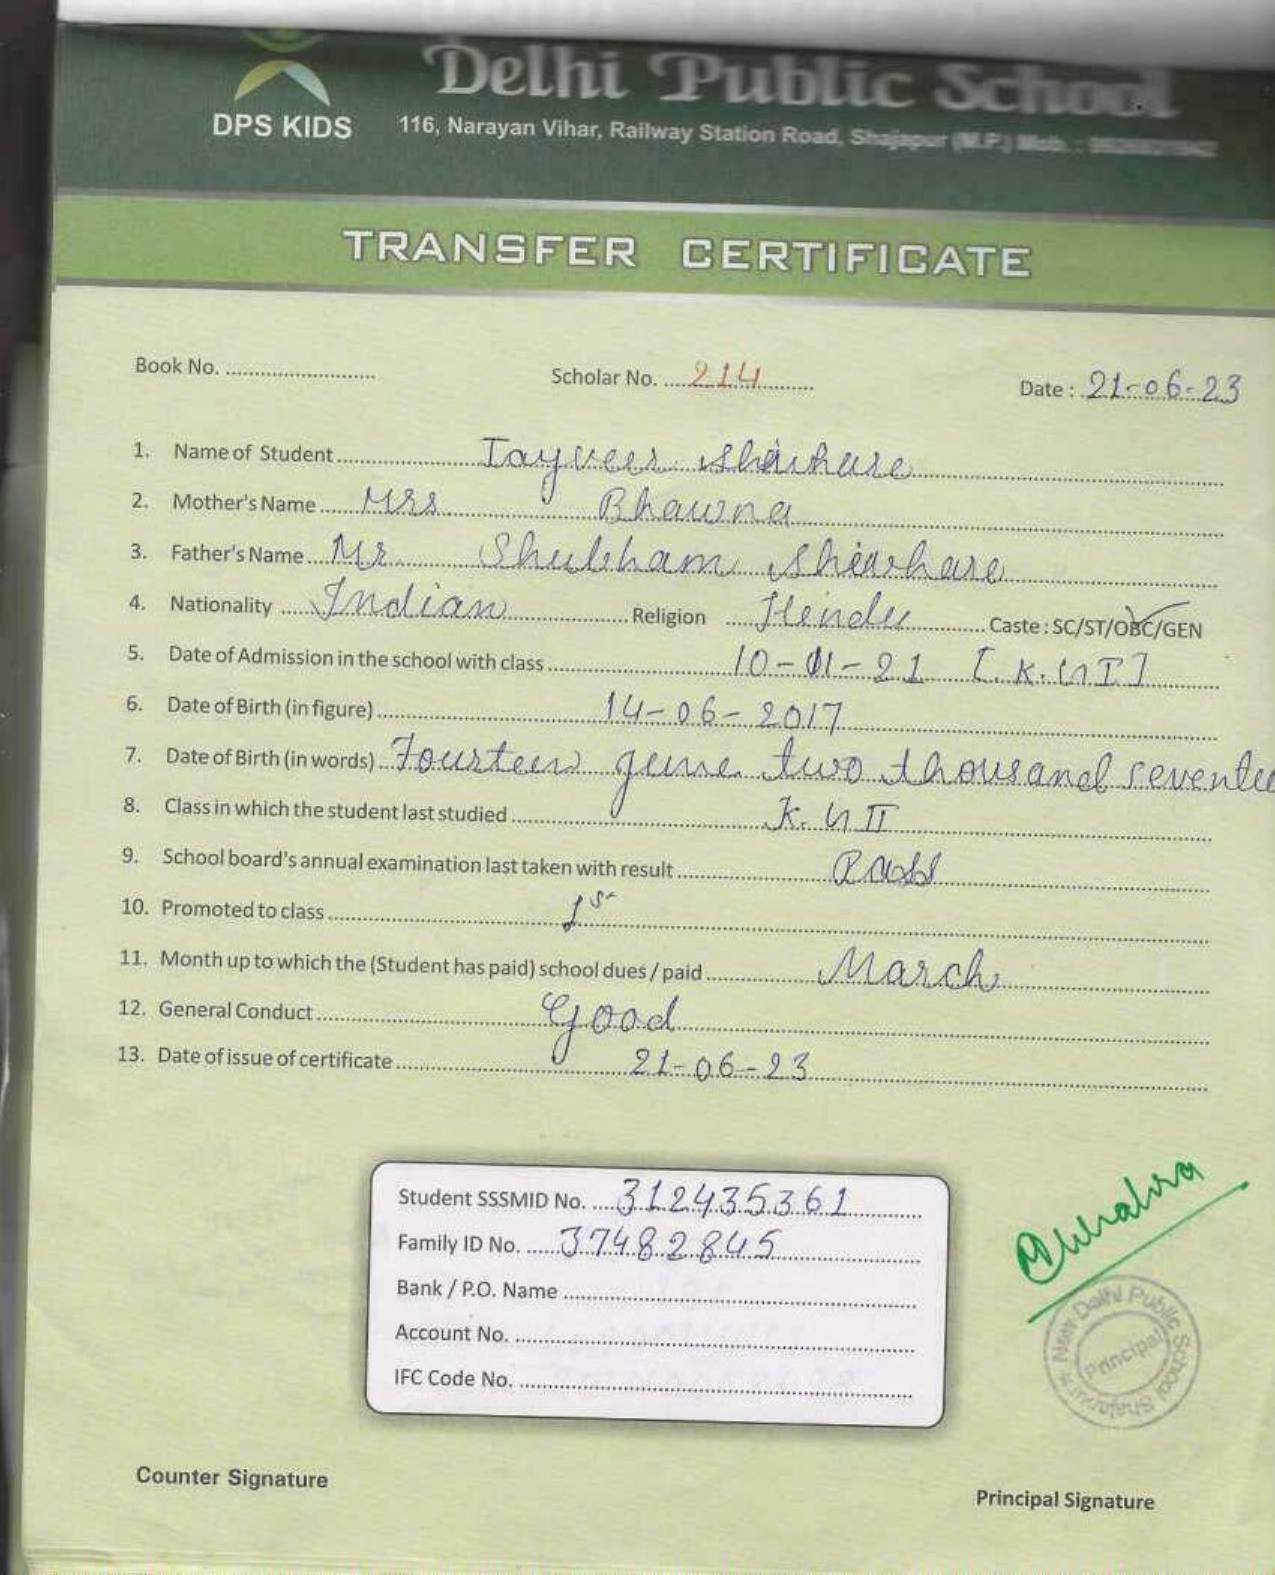 Delhi Public School
DPS KIDS
116, Narayan Vihar, Railway Station Road, Shajapur (M.P.) Mob. :
TRANSFER CERTIFICATE
Book No. Scholar No. 214 Date : 21-06-23
1. Name of Student Jayveer Shivhare
2. Mother's Name Mrs Bhawna
3. Father's Name Mr. Shubham Shivhare
4. Nationality Indian Religion Hindu Caste : SC/ST/OBC/GEN
5. Date of Admission in the school with class 10-01-21 [K.G I]
6. Date of Birth (in figure) 14-06-2017
7. Date of Birth (in words) Fourteen june two thousand seventee
8. Class in which the student last studied K.G II
9. School board's annual examination last taken with result Pass
10. Promoted to class 1st
11. Month up to which the (Student has paid) school dues / paid March
12. General Conduct Good
13. Date of issue of certificate 21-06-23
Student SSSMID No. 312435361
Family ID No. 37482845
Bank / P.O. Name
Account No.
IFC Code No.
New Delhi Public School Shajapur
Principal
Counter Signature
Principal Signature